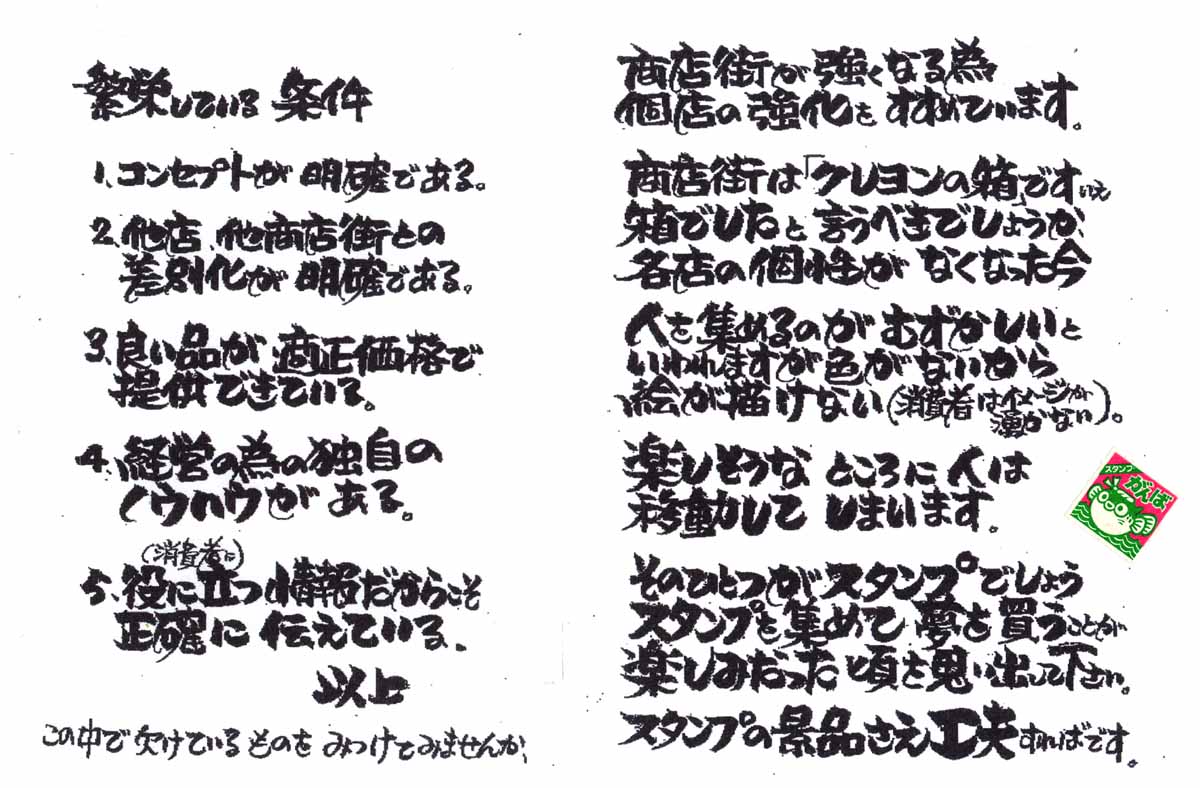 繁栄している 条件
1、コンセプトが 明確である。
2、他店、他商店街との
差別化が 明確である。
3、良い品が 適正価格で
提供できている。
4、経営の為の独自の
ノウハウがある。
(消費者に)
5、役に立つ情報だからこそ
正確に 伝えている。
以上
この中で 欠けているものを みつけてみませんか、
商店街が 強くなる為
個店の 強化を すすめています。
商店街は「クレヨンの箱」です いえ
箱でしたと 言うべきでしょうか、
各店の 個性が なくなった今
人を 集めるのが むずかしいと
いわれますが 色がないから
絵が 描けない (消費者はイメージが
湧かない)。
楽しそうな ところに 人は
移動して しまいます。
スタンプ
がんば
そのひとつが スタンプでしょう
スタンプを 集めて 夢を 買うことが
楽しみだった 頃を 思い出して下さい。
スタンプの 景品さえ 工夫 すればです。